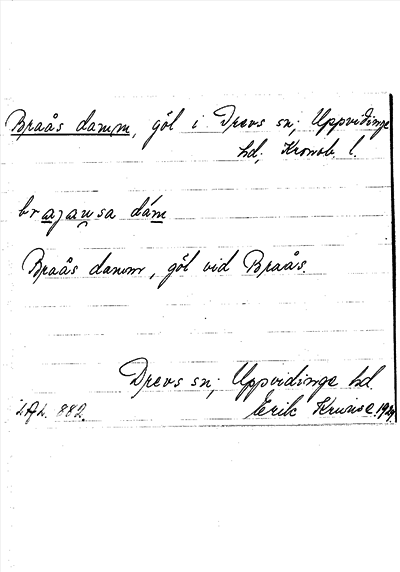 Braås damm, göl i Drevs sn; Uppvidinge
hd; Kronob. l.
brajausa dám
Braås damm, göl vid Braås.
Drevs sn; Uppvidinge hd.
LAL. 882.
Erik Kruuse.